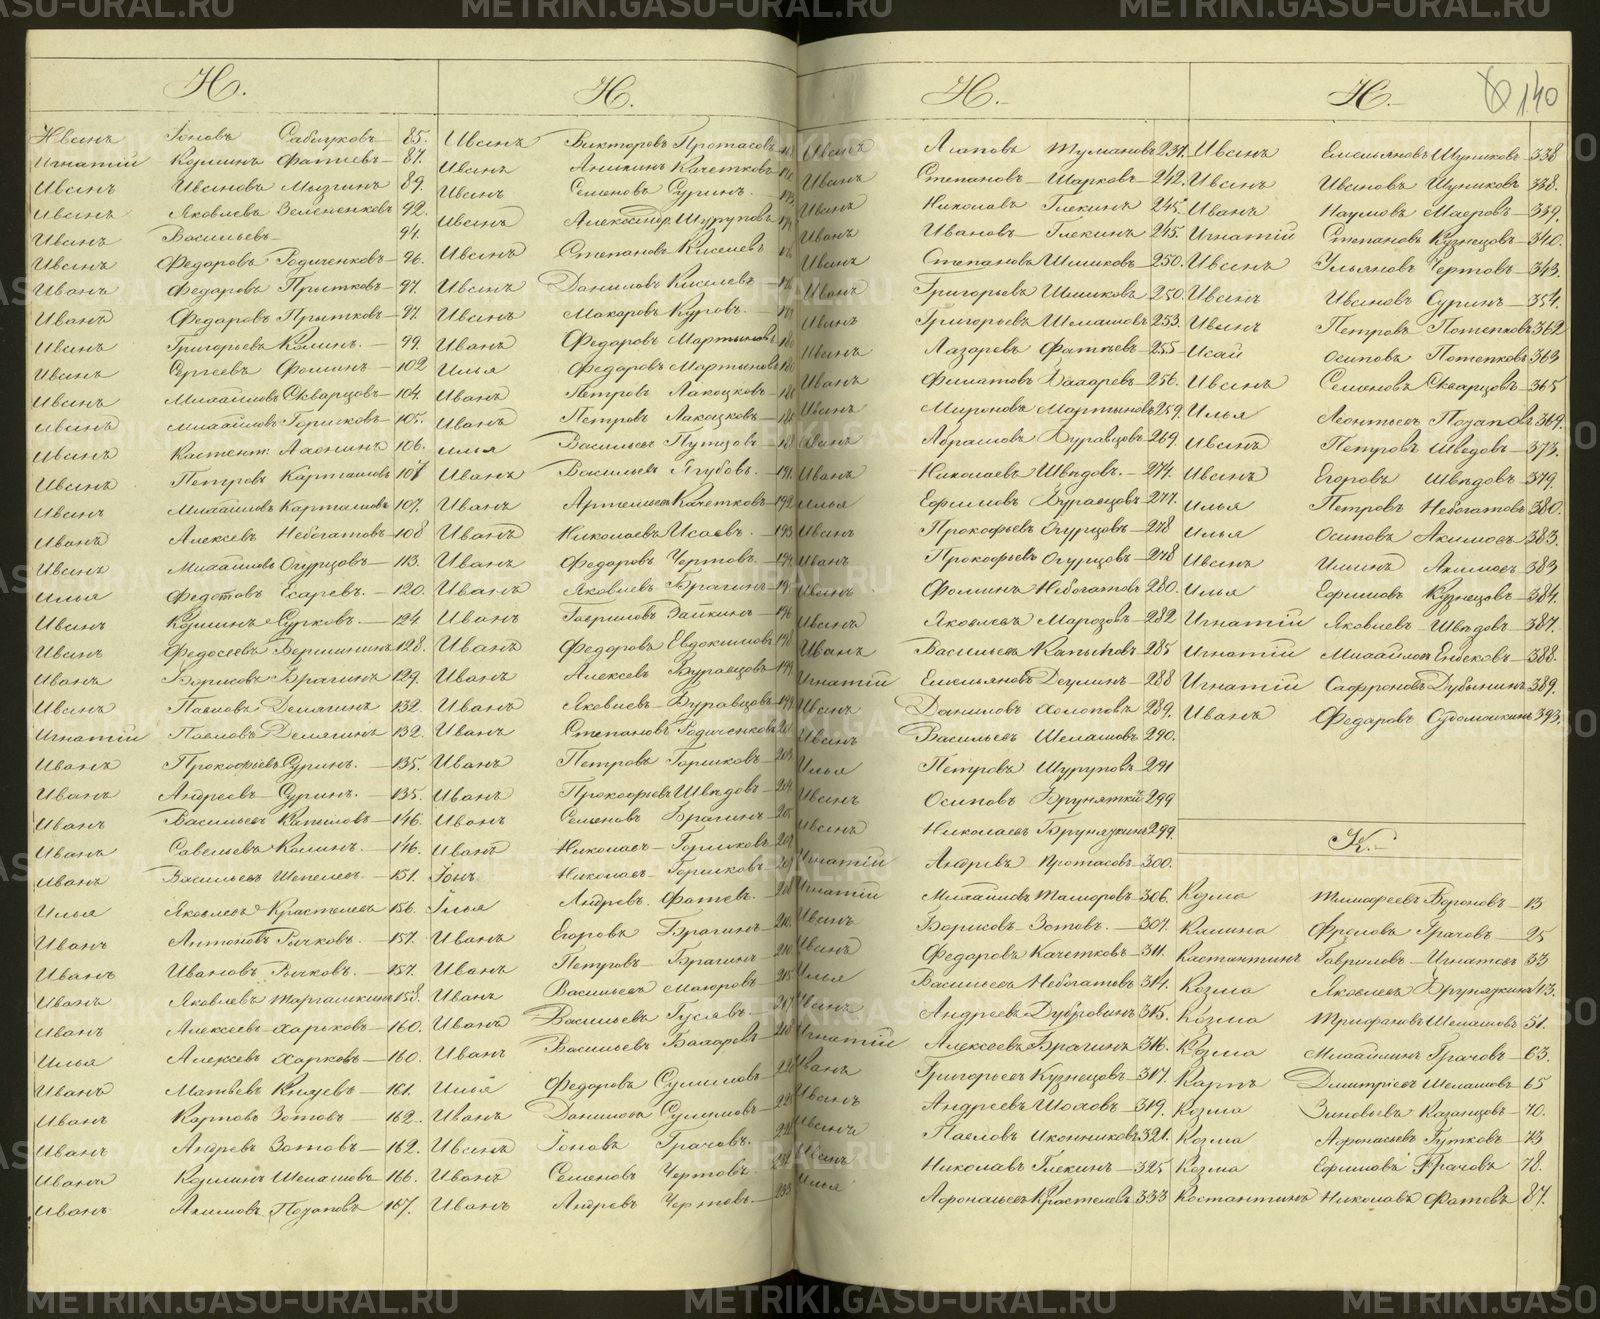 METRIKI.GASU-URAL.RU
И.
Иванъ Іоновъ 85.
Игнатій Козминъ Фатѣевъ 87.
Иванъ Ивановъ Мызгинъ 89.
Иванъ Яковлевъ Зелененковъ 92.
Иванъ Васильевъ 94.
Иванъ Федоровъ Родиченковъ 96.
Иванъ Федоровъ Прытковъ 97.
Иванъ Федоровъ Прытковъ 97.
Иванъ Григорьевъ Калинъ. 99.
Иванъ Сергѣевъ Фоминъ 102
Иванъ Михайловъ Скварцовъ 104.
Иванъ Михайловъ Горшковъ 105.
Иванъ Констент: 106.
Иванъ Петровъ Карташовъ 107
Иванъ Михайловъ Карташовъ 107.
Иванъ Алексѣевъ Небогатовъ 108
Иванъ Михайловъ Огурцовъ 113.
Илья Федотовъ Есаревъ. 120.
Иванъ Козминъ Сурковъ. 124
Иванъ Федосѣевъ Вершининъ 128.
Иванъ Борисовъ Брагинъ 129.
Иванъ Павловъ Демягинъ 132.
Игнатій Павловъ Демягинъ 132.
Иванъ Прокофьевъ Суринъ. 135.
Иванъ Андреевъ Суринъ. 135.
Иванъ Васильевъ Капыловъ 146.
Иванъ Савельевъ Калинъ. 146.
Иванъ Васильевъ Шепелевъ 151.
Илья Яковлевъ Крастелевъ 156.
Иванъ Антоновъ Рычковъ. 157.
Иванъ Ивановъ Рычковъ. 157.
Иванъ Яковлевъ 158.
Иванъ Алексѣевъ Харьковъ 160.
Илья Алексѣевъ Харковъ 160.
Иванъ Матвѣевъ Князевъ 161.
Иванъ Карповъ Зотовъ 162.
Иванъ Андреевъ Зотовъ 162.
Иванъ Козминъ Шемашовъ 166.
Иванъ Акимовъ Позаповъ 167.
И.
Иванъ Викторовъ Протасовъ
Иванъ Аникинъ Качетковъ
Иванъ Семеновъ Суринъ.
Иванъ Александр. Шуруповъ
Иванъ Степановъ Киселевъ
Иванъ Даниловъ Киселевъ
Иванъ Макаровъ Куровъ.
Иванъ Федоровъ Мартыновъ
Илья Федоровъ Мартыновъ
Иванъ Петровъ Лакоцковъ
Иванъ Петровъ Лакоцковъ
Илья Васильевъ
Иванъ Васильевъ Ягубовъ. 191.
Иванъ Артемьевъ Качетковъ 192
Иванъ Николаевъ Исаевъ. 193
Иванъ Федоровъ Чертовъ. 194
Иванъ Яковлевъ Брагинъ
Иванъ Гавриловъ Зайкинъ 196
Иванъ Федоровъ Евдокимовъ 198
Иванъ Алексѣевъ Буравцовъ 199
Иванъ Яковлевъ Буравцовъ 199
Иванъ Степановъ Родиченковъ
Иванъ Петровъ Горшковъ 203
Иванъ Прокофьевъ Шведовъ 204
Иванъ Семеновъ Брагинъ
Иванъ Николаевъ Горшковъ
Іонъ Николаевъ Горшковъ
Илья Андреевъ. Фатеевъ.
Иванъ Егоровъ Брагинъ 210
Иванъ Петровъ Брагинъ 210
Иванъ Васильевъ Маюровъ 215
Иванъ Васильевъ Гусевъ 217
Иванъ Васильевъ Бахаровъ 218
Илья Федоровъ Сумимовъ
Иванъ Даниловъ Сумимовъ
Иванъ Іоновъ Грачовъ.
Иванъ Семеновъ Чертовъ.
Иванъ Андреевъ Чертовъ. 233
И.
Иванъ Агаповъ Тумановъ 237.
Иванъ Степановъ Шарковъ 242.
Иванъ Николаевъ Глекинъ 245.
Иванъ Ивановъ Глекинъ 245.
Иванъ Степановъ Шишковъ 250.
Иванъ Григорьевъ Шишковъ 250.
Иванъ Григорьевъ Шемашовъ 253.
Иванъ Лазаревъ Фатѣевъ 255
Иванъ Филатовъ Бахаревъ 256.
Иванъ Мироновъ Мартыновъ 259.
Иванъ Абрамовъ Буравцовъ 269.
Иванъ Николаевъ Шведовъ. 274.
Илья Ефимовъ Буравцовъ 277.
Иванъ Прокофьевъ Огурцовъ 278
Иванъ Прокофьевъ Огурцовъ 278
Иванъ Фоминъ Небогатовъ 280.
Иванъ Яковлевъ Марозовъ 282
Иванъ Васильевъ Капыловъ 285
Игнатій Емельяновъ 288
Иванъ Даниловъ Холоповъ 289.
Иванъ Васильевъ Шемашовъ 290.
Илья Петровъ Шуруповъ 291
Иванъ Осиповъ 299
Иванъ Николаевъ Бруняткинъ 299.
Игнатій Андреевъ Протасовъ 300.
Игнатій Михайловъ 306.
Иванъ Борисовъ Зотовъ. 307.
Иванъ Федоровъ Качетковъ 311.
Илья Васильевъ Небогатовъ 314.
Иванъ Андреевъ Дубровинъ 315.
Игнатій Алексѣевъ Брагинъ 316.
Иванъ Григорьевъ Кузнецовъ 317.
Иванъ Андреевъ Шоховъ 319.
Иванъ Павловъ Иконниковъ 321.
Иванъ Николаевъ Глекинъ 325
Илья Афонасьевъ Крастелевъ 333
И. 140
Иванъ Емельяновъ Шуниковъ 338
Иванъ Ивановъ Шуниковъ 338.
Иванъ Наумовъ Маеровъ 339.
Игнатій Степановъ Кузнецовъ 340.
Иванъ Ульяновъ Чертовъ 343.
Иванъ Ивановъ Суринъ 354.
Иванъ Петровъ Потепковъ 362
Исай Осиповъ Потепковъ 363
Иванъ Семеновъ Скварцовъ 365
Илья Леонтьевъ Позаповъ 369.
Иванъ Петровъ Шведовъ 373.
Иванъ Егоровъ Шведовъ 379
Илья Петровъ Небогатовъ 380.
Илья Осиповъ Акимовъ 383.
Иванъ Акимовъ 383
Илья Ефимовъ Кузнецовъ 384.
Игнатій Яковлевъ Шведовъ 387.
Игнатій Михайловъ 388.
Игнатій Сафроновъ Дубынинъ 389.
Иванъ Федоровъ Судомойкинъ 393.
К.
Козма Тимофеевъ Вороновъ 13
Калина Фроловъ Грачовъ 25
Костантинъ Гавриловъ Игнатевъ 33
Козма Яковлевъ Бруняткинъ 43.
Козма Трифановъ Шемашовъ 51.
Козма Михайлинъ Грачовъ 63.
Карпъ Дмитріевъ Шемашовъ 65
Козма Зиновьевъ Казанцовъ 70.
Козма Афонасьевъ Гутковъ 73
Козма Ефимовъ Грачовъ 78.
Костантинъ Николаевъ Фатеевъ 87.
METRIKI.GASU-URAL.RU